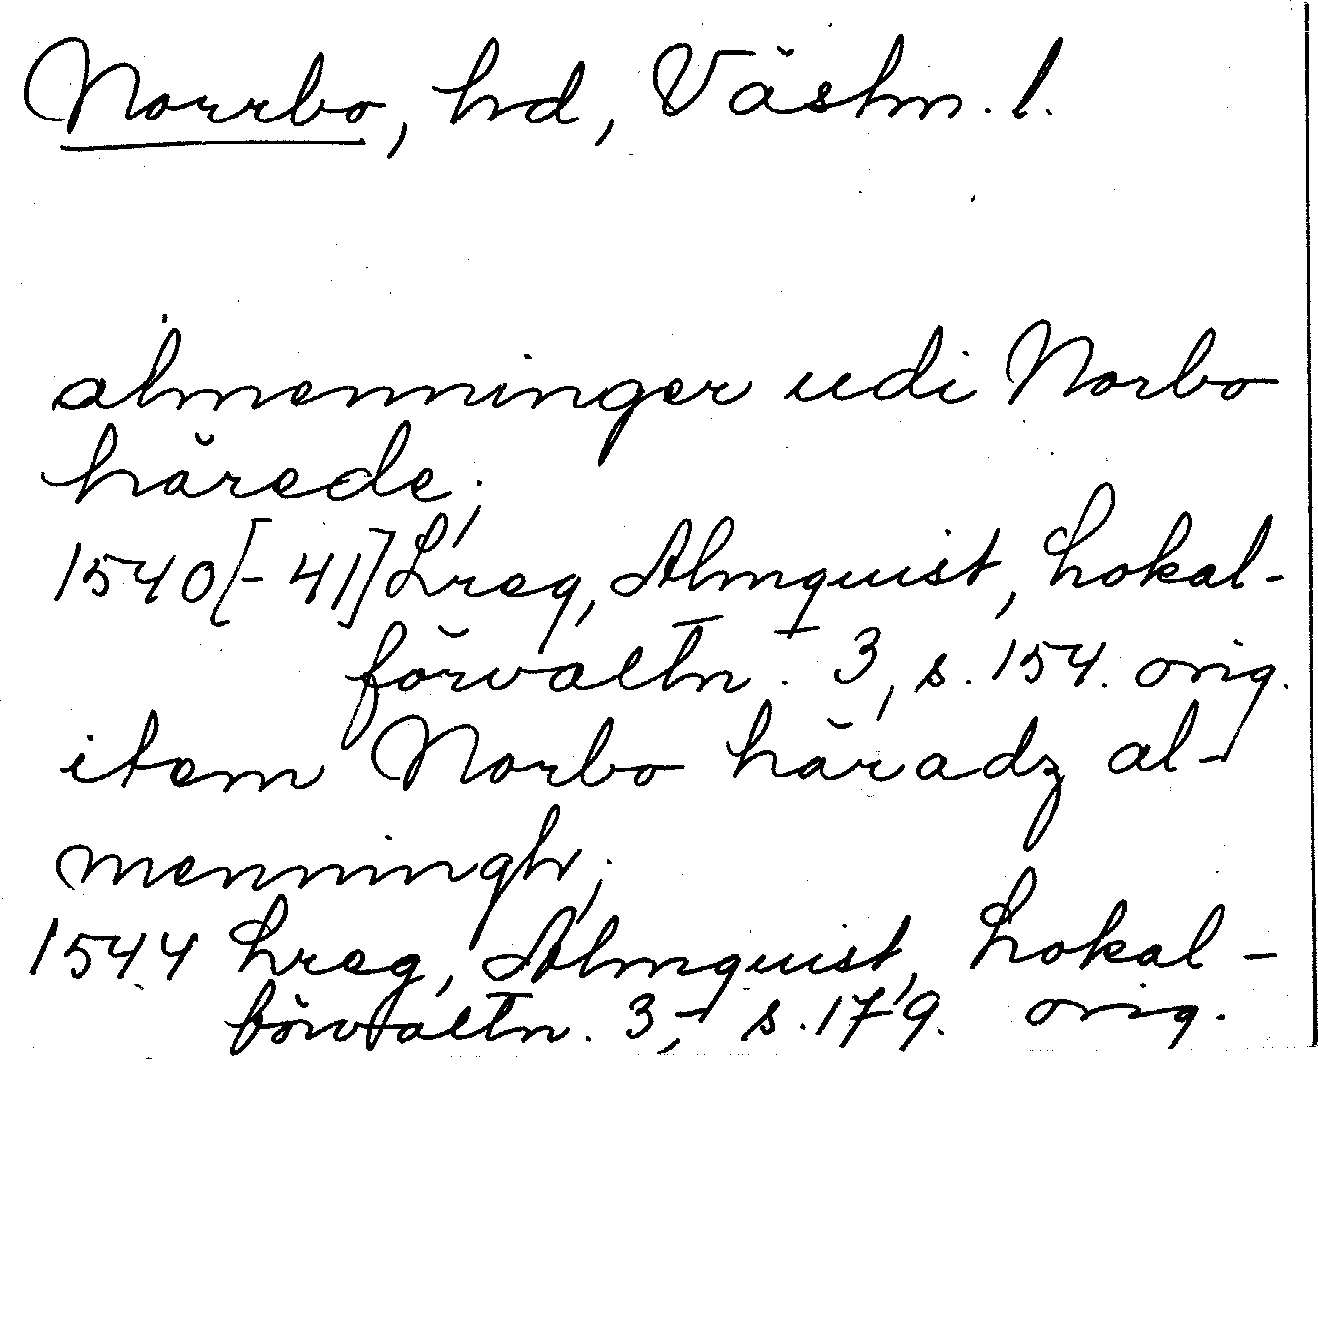 Norrbo, hd, Västm. l.
almenninger udi Norbo
härede;
1540[-41] Lreg, Almquist, Lokal-
förvaltn. 3, s. 154. orig.
item Norbo häradz al-
menningh;
1544 Lreg, Almquist, Lokal-
förvaltn. 3, s. 179. orig.